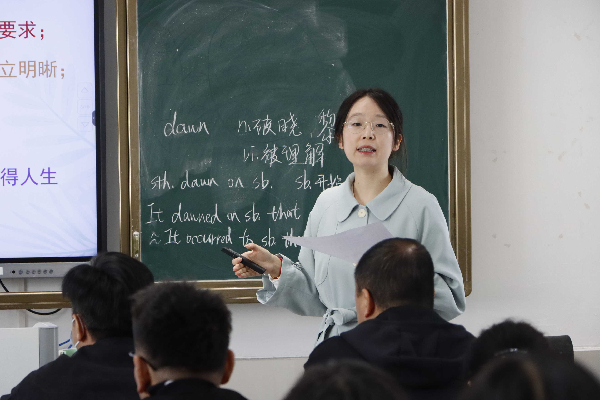 要求；
立明晰；
得人生
dawn n.破晓，黎
vi.被理解
sth. dawn on sb. sb.开始
It dawned on sb. that
≈ It occurred to sb. th